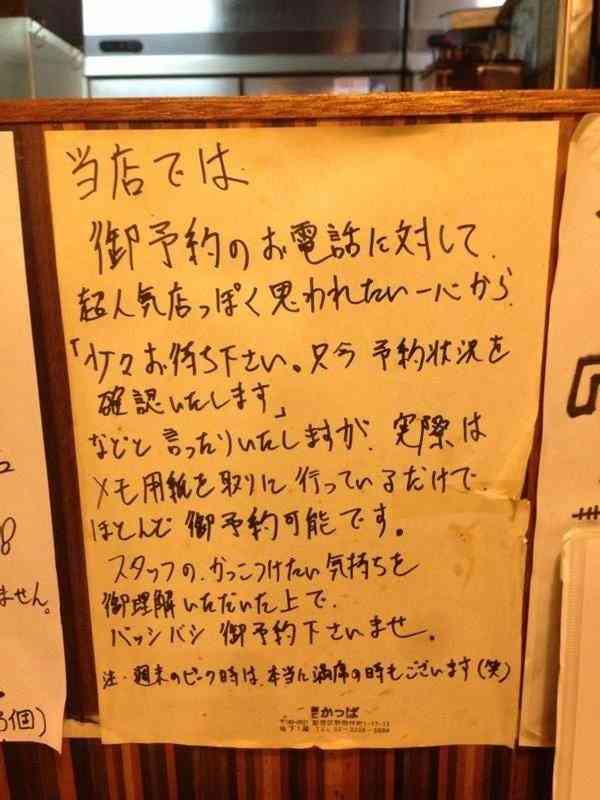 当店では
御予約のお電話に対して、
超人気店っぽく思われたい一心から、
「少々お待ち下さい。只今 予約状況を
確認いたします」
などと言ったりいたしますが、実際は
メモ用紙を取りに行っているだけで、
ほとんど御予約可能です。
スタッフの、かっこつけたい気持ちを
御理解いただいた上で、
バッシバシ御予約下さいませ。
注・週末のピーク時は、本当に満席の時もございます(笑)
かっぱ
ません。
個)